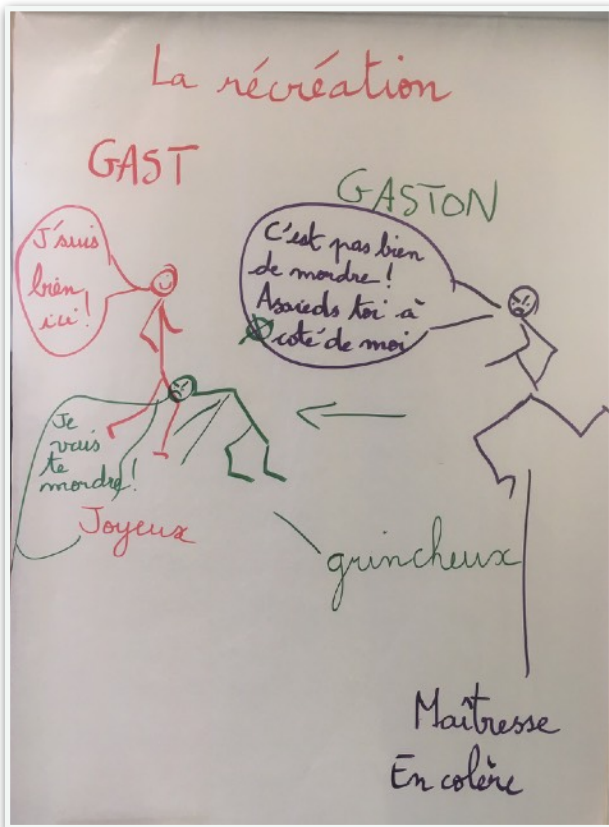 La récréation
GAST
GASTON
J'suis
bien
ici !
C'est pas bien
de mordre !
Assieds toi à
coté de moi
Je
vais
te
mordre !
Joyeux
grincheux
Maîtresse
En colère